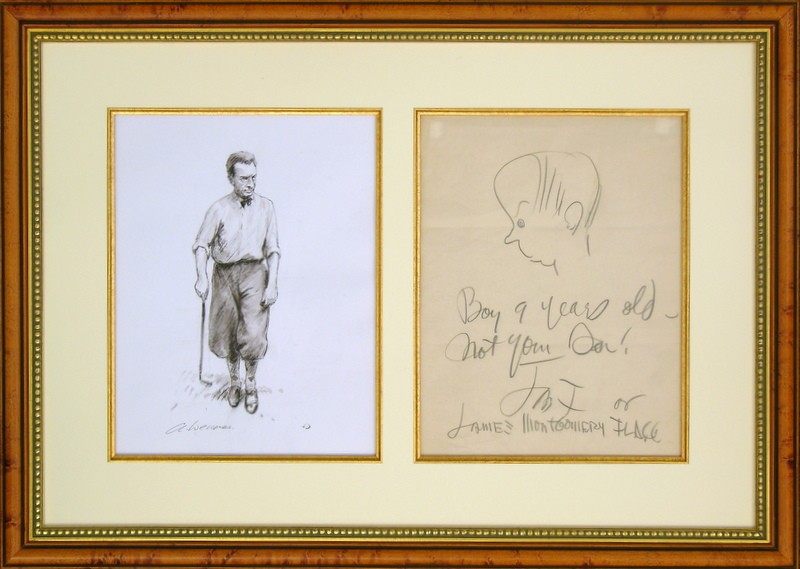 Boy 9 years old -
not your Son!
JMF or
JAMES MONTGOMERY FLAGG